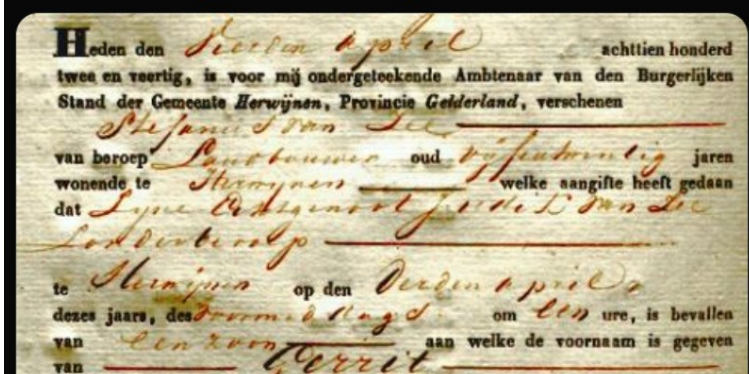 Heden den Vierden april achttien honderd
twee en veertig, is voor mij ondergeteekende Ambtenaar van den Burgerlijken
Stand der Gemeente Herwijnen, Provincie Gelderland, verschenen
Stefanus van Zee
van beroep Landbouwer oud vijfentwintig jaren
wonende te Herwijnen welke aangifte heeft gedaan
dat Zyne Echtgenoot van Zee
Zonder beroep
te Herwijnen op den Derden april
dezes jaars, des voormiddags om Een ure, is bevallen
van Een zoon aan welke de voornaam is gegeven
van Gerrit